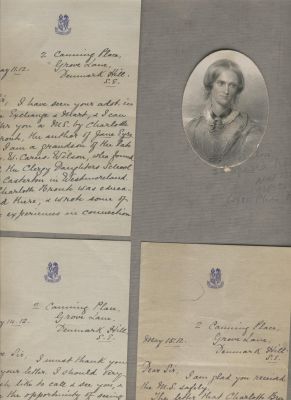 2 Canning Place,
Grove Lane,
Denmark Hill.
S.E.
May 11.12.
Sir, I have seen your advt. in
Exchange & Mart, & I can
you a M.S. by Charlotte
Bronte, the author of Jane Eyre
I am a grandson of the late
W. Carus Wilson, who founded
the Clergy Daughters School
Casterton in Westmoreland
Charlotte Bronte was educa-
there, & wrote some of
experiences in connection
2 Canning Place,
Grove Lane,
Denmark Hill
S.E.
May 14.12.
Sir, I must thank you
your letter. I should very
like to call & see you, &
the opportunity of seeing
2 Canning Place,
Grove Lane,
Denmark Hill
S.E.
May 15.12.
Dear Sir,
I am glad you received
the M.S. safely.
The letter that Charlotte Bro